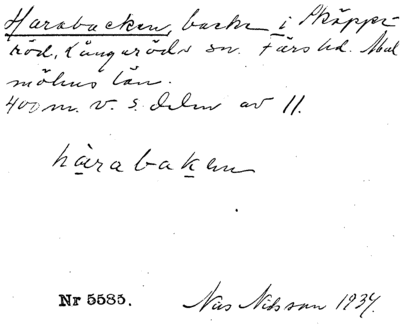 Harabacken, backe i Sköppe
röd, Långaröds sn. Färs hd. Mal
möhus län.
400 m. v. s. delen av 11.
hàrabaken
Nr 5585.
Nils Nilsson 1934.